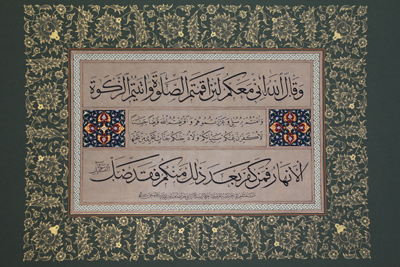 وقال الله اني معكم لئن اقمتم الصلوة واتيتم الزكوة
وامنتم برسلي وعزرتموهم واقرضتم الله قرضا حسنا
لاكفرن عنكم سيئاتكم ولادخلنكم جنات تجري من تحتها
الانهار فمن كفر بعد ذلك منكم فقد ضل سواء السبيل